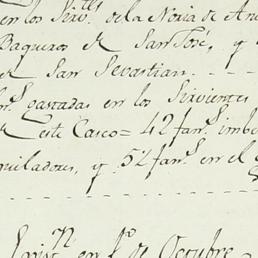 en los Sirv.tes de la Noria de An
Baqueros de San José, y
de San Sevastian.
fan.s gastadas en los Sirvientes
de este Casco = 42 fan.s imbe
quiladores, y 52 fan.s en el
en 1.o de Octubre